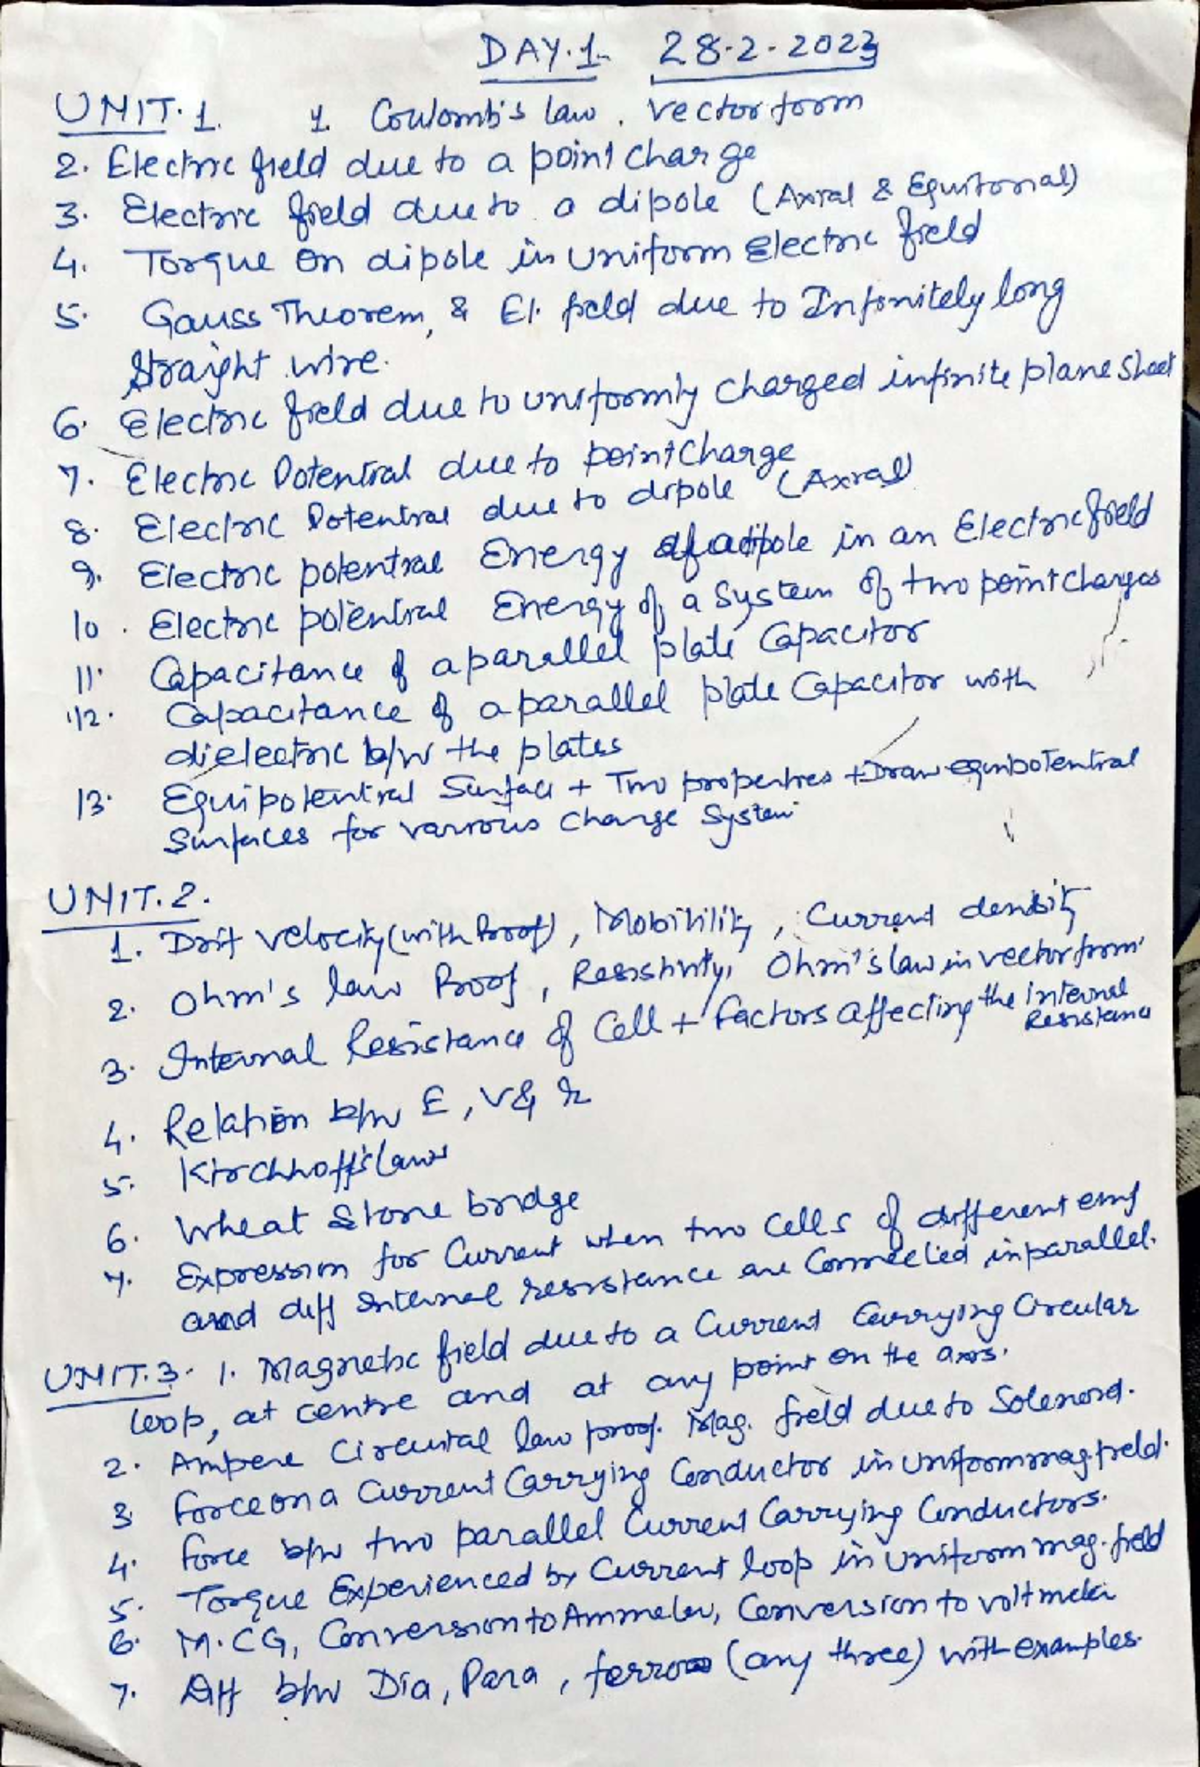 DAY.1. 28.2.2023
UNIT.1. 1. Coulomb's law. Vector form
2. Electric field due to a point charge
3. Electric field due to a dipole (Axial & Equitorial)
4. Torque on dipole in uniform electric field
5. Gauss Theorem, & El. field due to Infinitely long
straight wire.
6. Electric field due to uniformly charged infinite plane sheet
7. Electric Potential due to point charge
8. Electric Potential due to dipole (Axial)
9. Electric potential Energy of a dipole in an Electric field
10. Electric potential Energy of a System of two point charges
11. Capacitance of a parallel plate Capacitor
12. Capacitance of a parallel plate Capacitor with
dielectric b/w the plates
13. Equipotential Surface + Two properties + Draw equipotential
Surfaces for various charge system
UNIT.2.
1. Drift velocity (with Proof), Mobility, Current density
2. Ohm's law Proof, Resistivity, Ohm's law in vector from
3. Internal Resistance of Cell + factors affecting the internal
Resistance
4. Relation b/w E, V & r
5. Kirchhoff's laws
6. Wheat Stone bridge
7. Expression for Current when two cells of different emf
and diff internal resistance are Connected in parallel.
UNIT.3. 1. Magnetic field due to a Current Carrying Circular
loop, at centre and at any point on the axis.
2. Ampere Circuital law proof. Mag. field due to Solenoid.
3 force on a Current Carrying Conductor in uniform mag. field.
4. force b/w two parallel Current Carrying Conductors.
5. Torque Experienced by Current loop in uniform mag. field
6. M.CG, Conversion to Ammeter, Conversion to voltmeter
7. Diff b/w Dia, Para, ferro (any three) with examples.